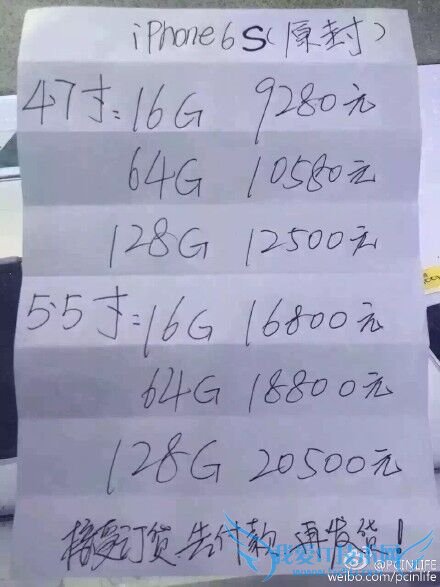 iPhone6S(原封)
4.7寸:16G 9280元
64G 10580元
128G 12500元
5.5寸:16G 16800元
64G 18800元
128G 20500元
接受订货 先付款 再发货!
@PCINLIFE
weibo.com/pcinlife